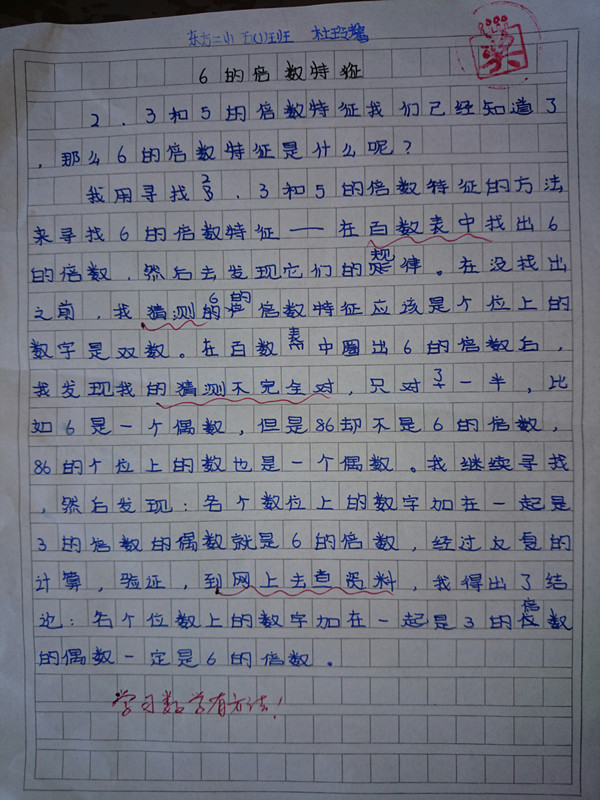 东方二小 五(1)班 杜
6的倍数特征
2、3和5的倍数特征我们已经知道了
，那么6的倍数特征是什么呢？
我用寻找2、3和5的倍数特征的方法
来寻找6的倍数特征——在百数表中找出6
的倍数，然后去发现它们的规律。在没找出
之前，我猜测的6的倍数特征应该是个位上的
数字是双数。在百数表中圈出6的倍数后，
我发现我的猜测不完全对，只对了一半，比
如6是一个偶数，但是86却不是6的倍数，
86的个位上的数也是一个偶数。我继续寻找
，然后发现：各个数位上的数字加在一起是
3的倍数的偶数就是6的倍数，经过反复的
计算，验证，到网上去查资料，我得出了结
论：各个位数上的数字加在一起是3的倍数
的偶数一定是6的倍数。
学习数学有方法！